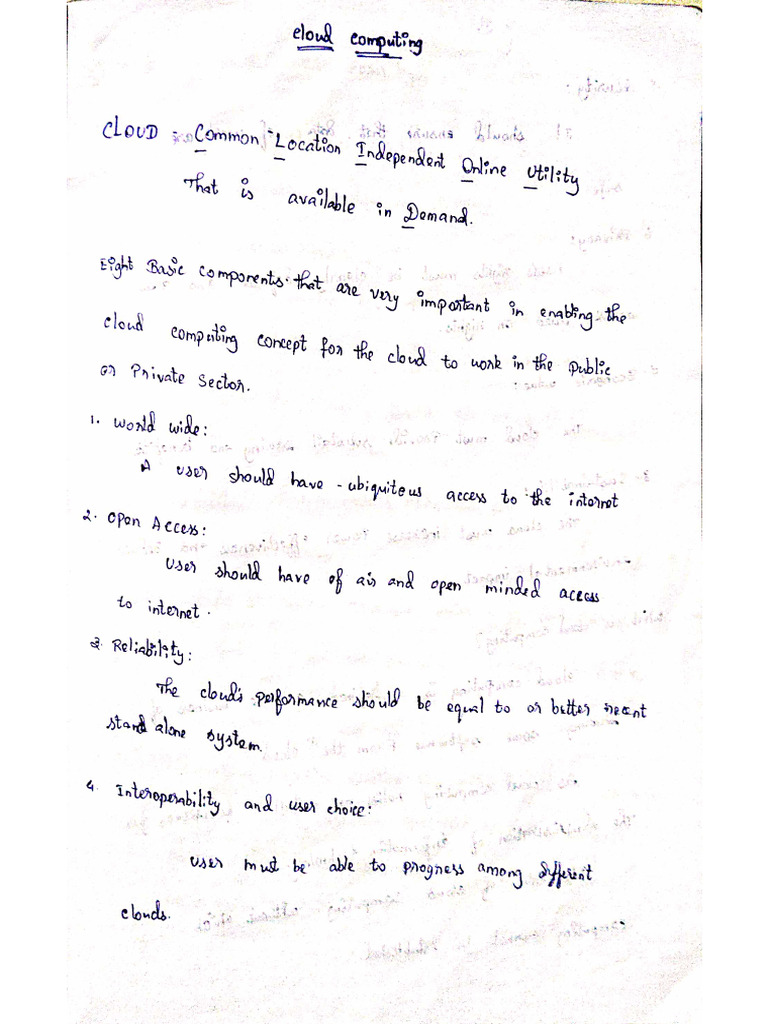 cloud computing
CLOUD - Common Location Independent Online Utility
That is available in Demand.
Eight Basic Components that are very important in enabling the
cloud computing concept for the cloud to work in the Public
or Private Sector.
1. World wide:
A user should have - ubiquitous access to the internet
2. Open Access:
User should have of air and open minded access
to internet.
3. Reliability:
The cloud's performance should be equal to or better recent
stand alone system.
4. Interoperability and user choice:
User must be able to progress among different
clouds.